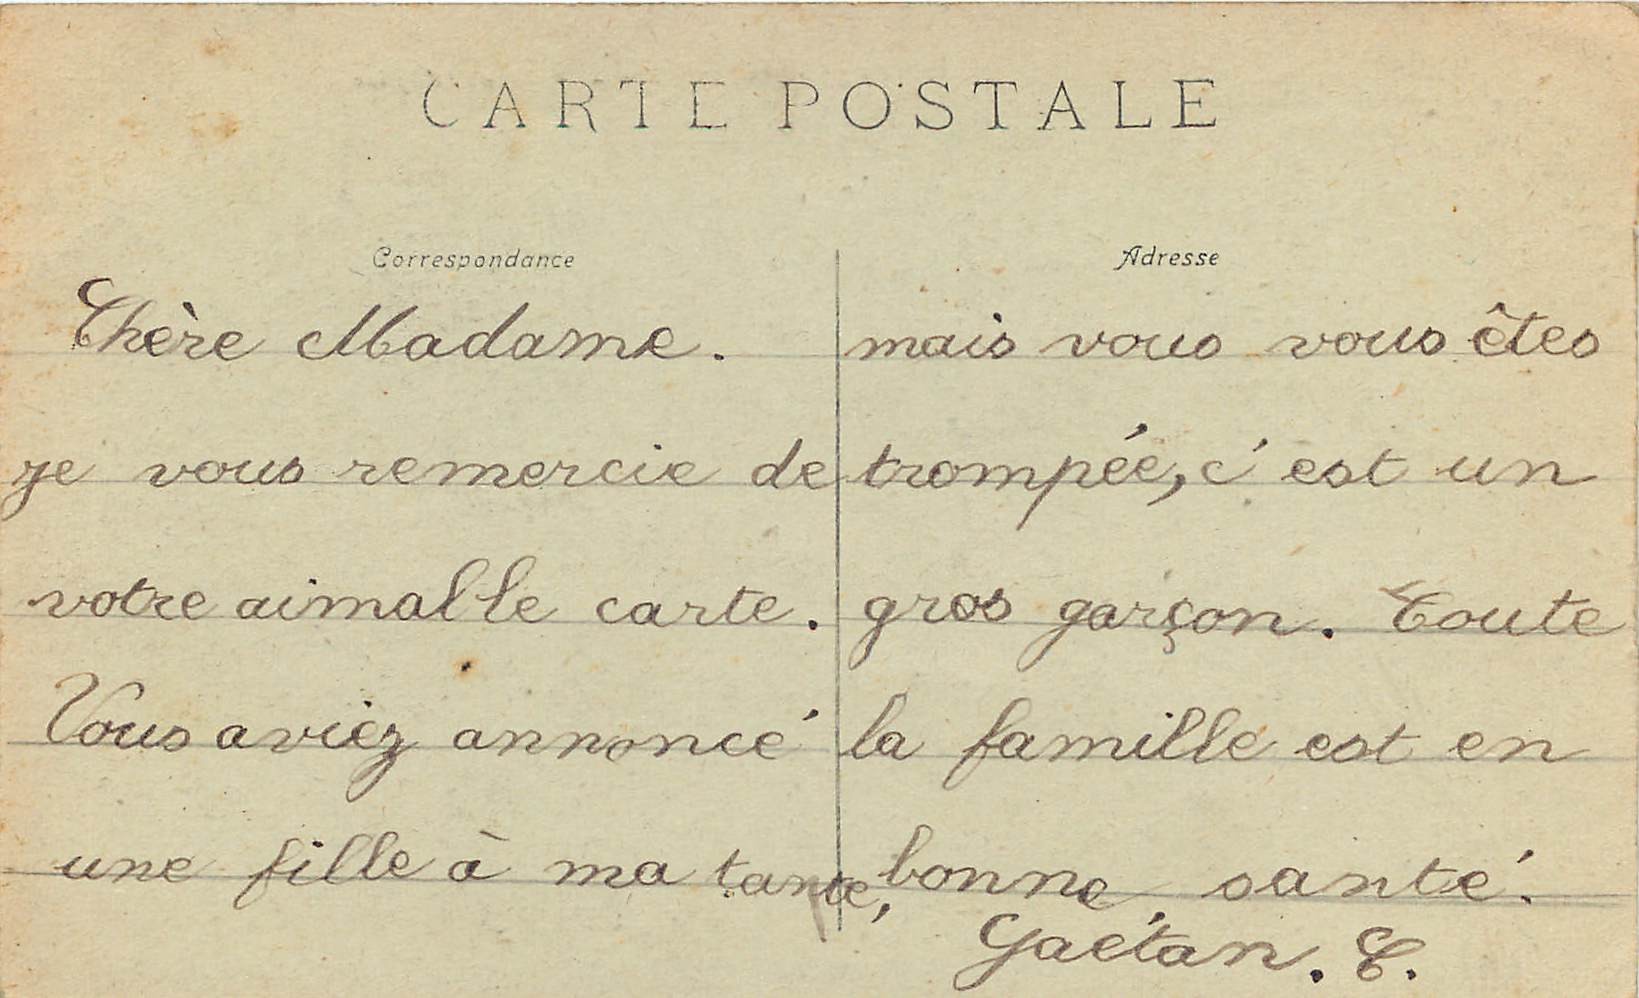 CARTE POSTALE
Correspondance
Chère Madame.
je vous remercie de
votre aimable carte.
Vous aviez annoncé
une fille à ma tante,
Adresse
mais vous vous êtes
trompée, c'est un
gros garçon. Toute
la famille est en
bonne santé.
Gaëtan. C.